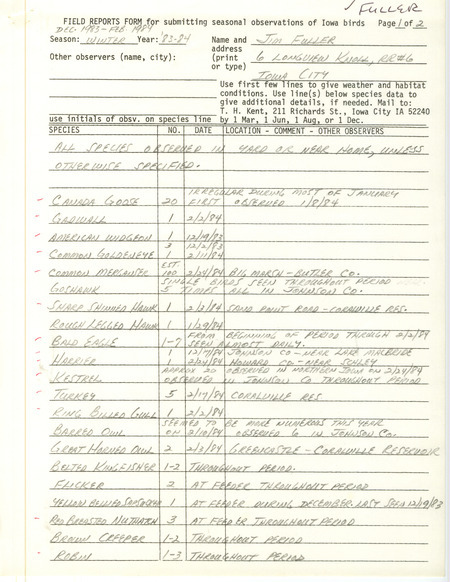 ✓ FULLER
FIELD REPORTS FORM for submitting seasonal observations of Iowa birds Page 1 of 2
DEC. 1983-FEB. 1984
Season: WINTER Year: '83-84 Name and JIM FULLER
address
Other observers (name, city): (print 6 LONGVIEW KNOLL, RR#6
or type)
IOWA CITY
Use first few lines to give weather and habitat
conditions. Use line(s) below species data to
give additional details, if needed. Mail to:
T. H. Kent, 211 Richards St., Iowa City IA 52240
use initials of obsv. on species line by 1 Mar, 1 Jun, 1 Aug, or 1 Dec.
SPECIES NO. DATE LOCATION - COMMENT - OTHER OBSERVERS
ALL SPECIES OBSERVED IN YARD OR NEAR HOME, UNLESS
OTHERWISE SPECIFIED.
IRREGULAR DURING MOST OF JANUARY
CANADA GOOSE 20 FIRST OBSERVED 1/8/84
GADWALL 1 2/2/84
AMERICAN WIDGEON 1 12/19/83
3 12/2/83
COMMON GOLDENEYE 1 2/11/84
EST.
COMMON MERGANSER 100 2/24/84 BIG MARSH - BUTLER CO.
SINGLE BIRDS SEEN THROUGHOUT PERIOD
GOSHAWK 5 TIMES ALL IN JOHNSON CO.
SHARP SHINNED HAWK 1 2/2/84 SAND POINT ROAD - CORALVILLE RES.
ROUGH LEGGED HAWK 1 1/29/84
FROM BEGINNING OF PERIOD THROUGH 2/2/84
BALD EAGLE 1-7 SEEN ALMOST DAILY.
1 12/17/84 JOHNSON CO - NEAR LAKE MACBRIDE
HARRIER 1 2/24/84 HOWARD CO - NEAR SCHLEY
APPROX 20 OBSERVED IN NORTHERN IOWA ON 2/24/84
KESTREL OBSERVED IN JOHNSON CO THROUGHOUT PERIOD
TURKEY 5 2/17/84 CORALVILLE RES
RING BILLED GULL 1 2/2/84
SEEMED TO BE MORE NUMEROUS THIS YEAR
BARRED OWL ON 2/10/84 OBSERVED 6 IN JOHNSON CO.
GREAT HORNED OWL 2 2/3/84 GREENCASTLE - CORALVILLE RESERVOIR
BELTED KINGFISHER 1-2 THROUGHOUT PERIOD.
FLICKER 2 AT FEEDER THROUGHOUT PERIOD
YELLOW BELLIED SAPSUCKER 1 AT FEEDER DURING DECEMBER. LAST SEEN 12/19/83
RED BREASTED NUTHATCH 3 AT FEEDER THROUGHOUT PERIOD
BROWN CREEPER 1-2 THROUGHOUT PERIOD
ROBIN 1-3 THROUGHOUT PERIOD